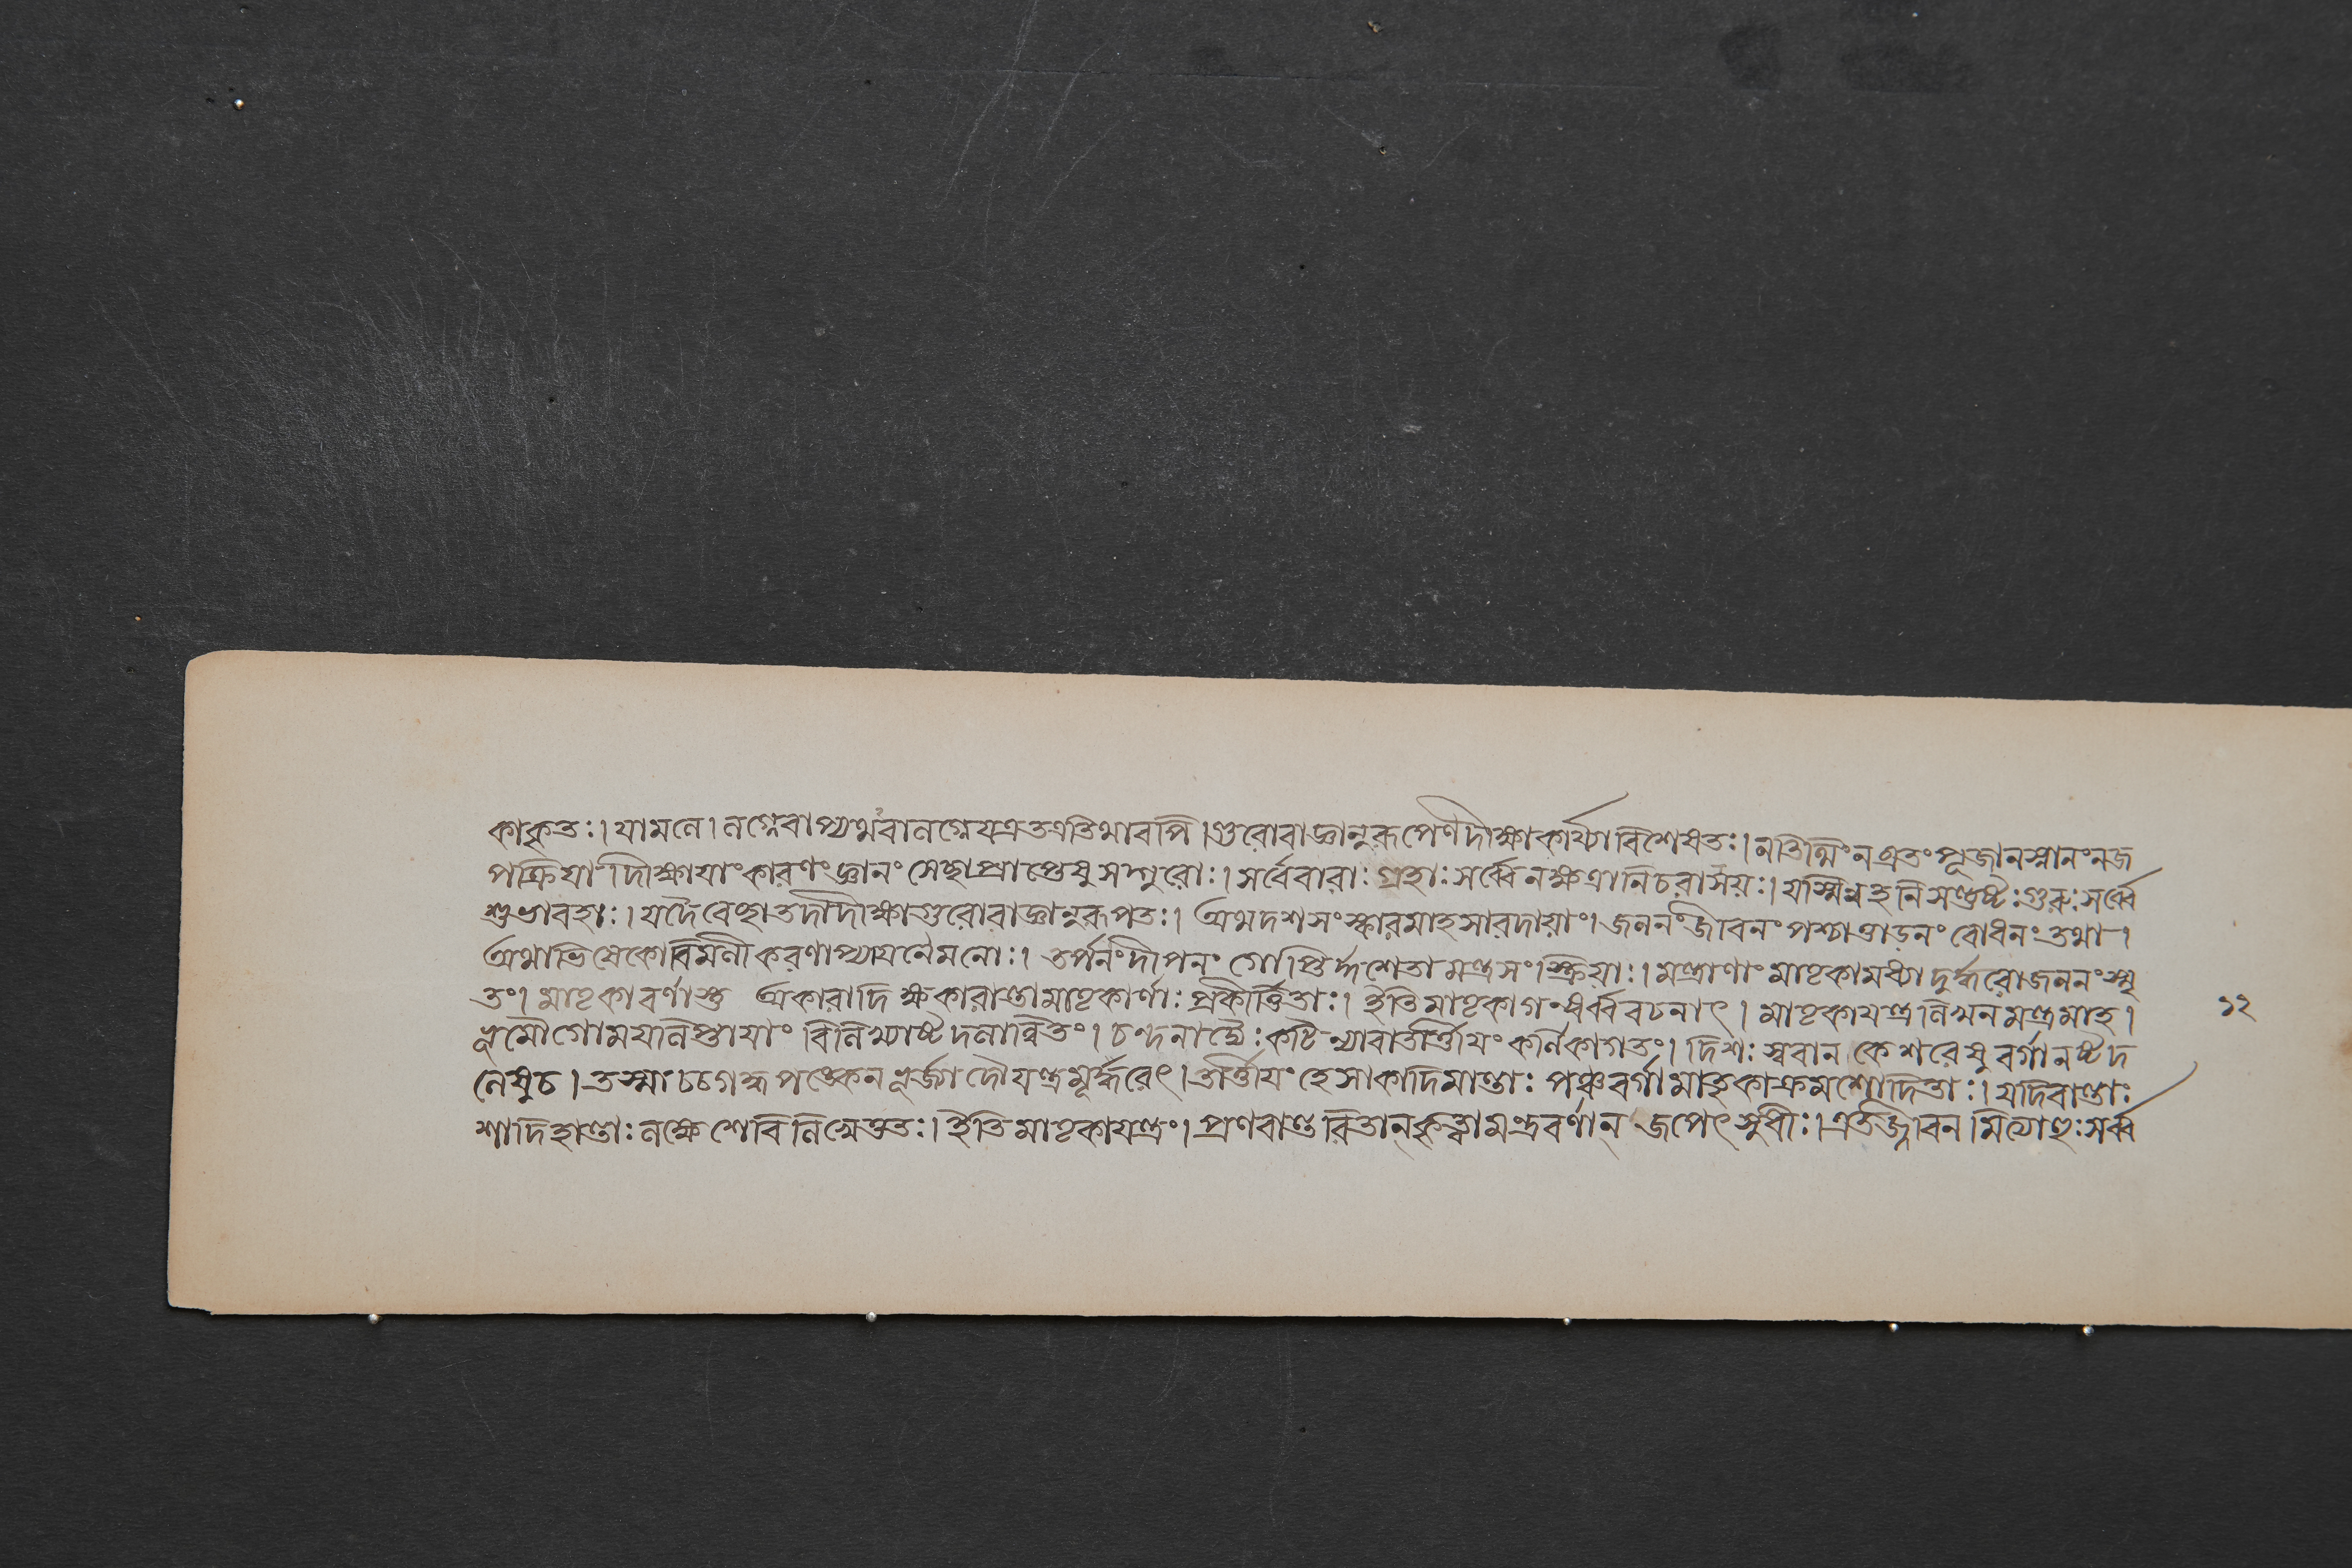 কাকৃতঃ। যামনে। নগ্নেবাপ্যথবানগ্নেযত্রতত্রতিথাবপি। গুরোরাজ্ঞানুরূপেণদীক্ষাকার্য্যাবিশেষতঃ। নতিথির্নব্রতংপূজানস্নানংনজ
পক্রিযা দীক্ষাযাংকারণংজ্ঞানং সেচ্ছাপ্রাপ্তেষুসদ্গুরোঃ। সর্বেবারাঃ গ্রহাঃ সর্ব্বে নক্ষত্রানিচরাসয়ঃ। যস্মিন্নহনিসন্তুষ্টঃ গুরুঃ সর্ব্বে
শুভাবহাঃ। যদৈবেচ্ছাতদাদীক্ষাগুরোরাজ্ঞানুরূপতঃ। অথদশসংস্কারমাহসারদায়াং। জননংজীবনং পশ্চাত্তাড়নং বোধনং তথা।
অথাভিষেকোবিমলীকরণাপ্যাযনেমনোঃ। তর্পনংদীপনং গোপ্তির্দ্দশৈতামন্ত্রসংস্ক্রিয়াঃ। মন্ত্রাণাং মাতৃকামধ্যাদুদ্ধরোজননংস্মৃ
তং। মাতৃকাবর্ণাস্তু অকারাদি ক্ষকারান্তামাতৃকার্ণাঃ প্রকীর্ত্তিতাঃ। ইতিমাতৃকাগন্ধর্ব্ববচনাৎ। মাতৃকাযন্ত্রলিখনমন্ত্রমাহ।
ভূমৌগোময়লিপ্তায়াং বিলিখ্যাষ্টদলান্বিতং। চন্দনাদ্যৈঃ কর্ণিকাগতং। দিশঃ স্বরান কেশরেষু বর্গানষ্টদ
লেষুচ। পঙ্কেন ভূর্জ্জাদৌযন্ত্রমুদ্ধরেৎ। কাদিমান্তাঃ পঞ্চবর্গামাতৃকাক্রমশোদিতাঃ। যদিবান্তাঃ
শাদিহান্তাঃ লক্ষে শেবিলিখেত্ততঃ। ইতিমাতৃকাযন্ত্রং। প্রণবান্তরিতানকৃত্বামন্ত্রবর্ণান্ জপেৎসুধীঃ। এতজ্জীবনমিত্যাহুঃ সর্ব্ব
১২